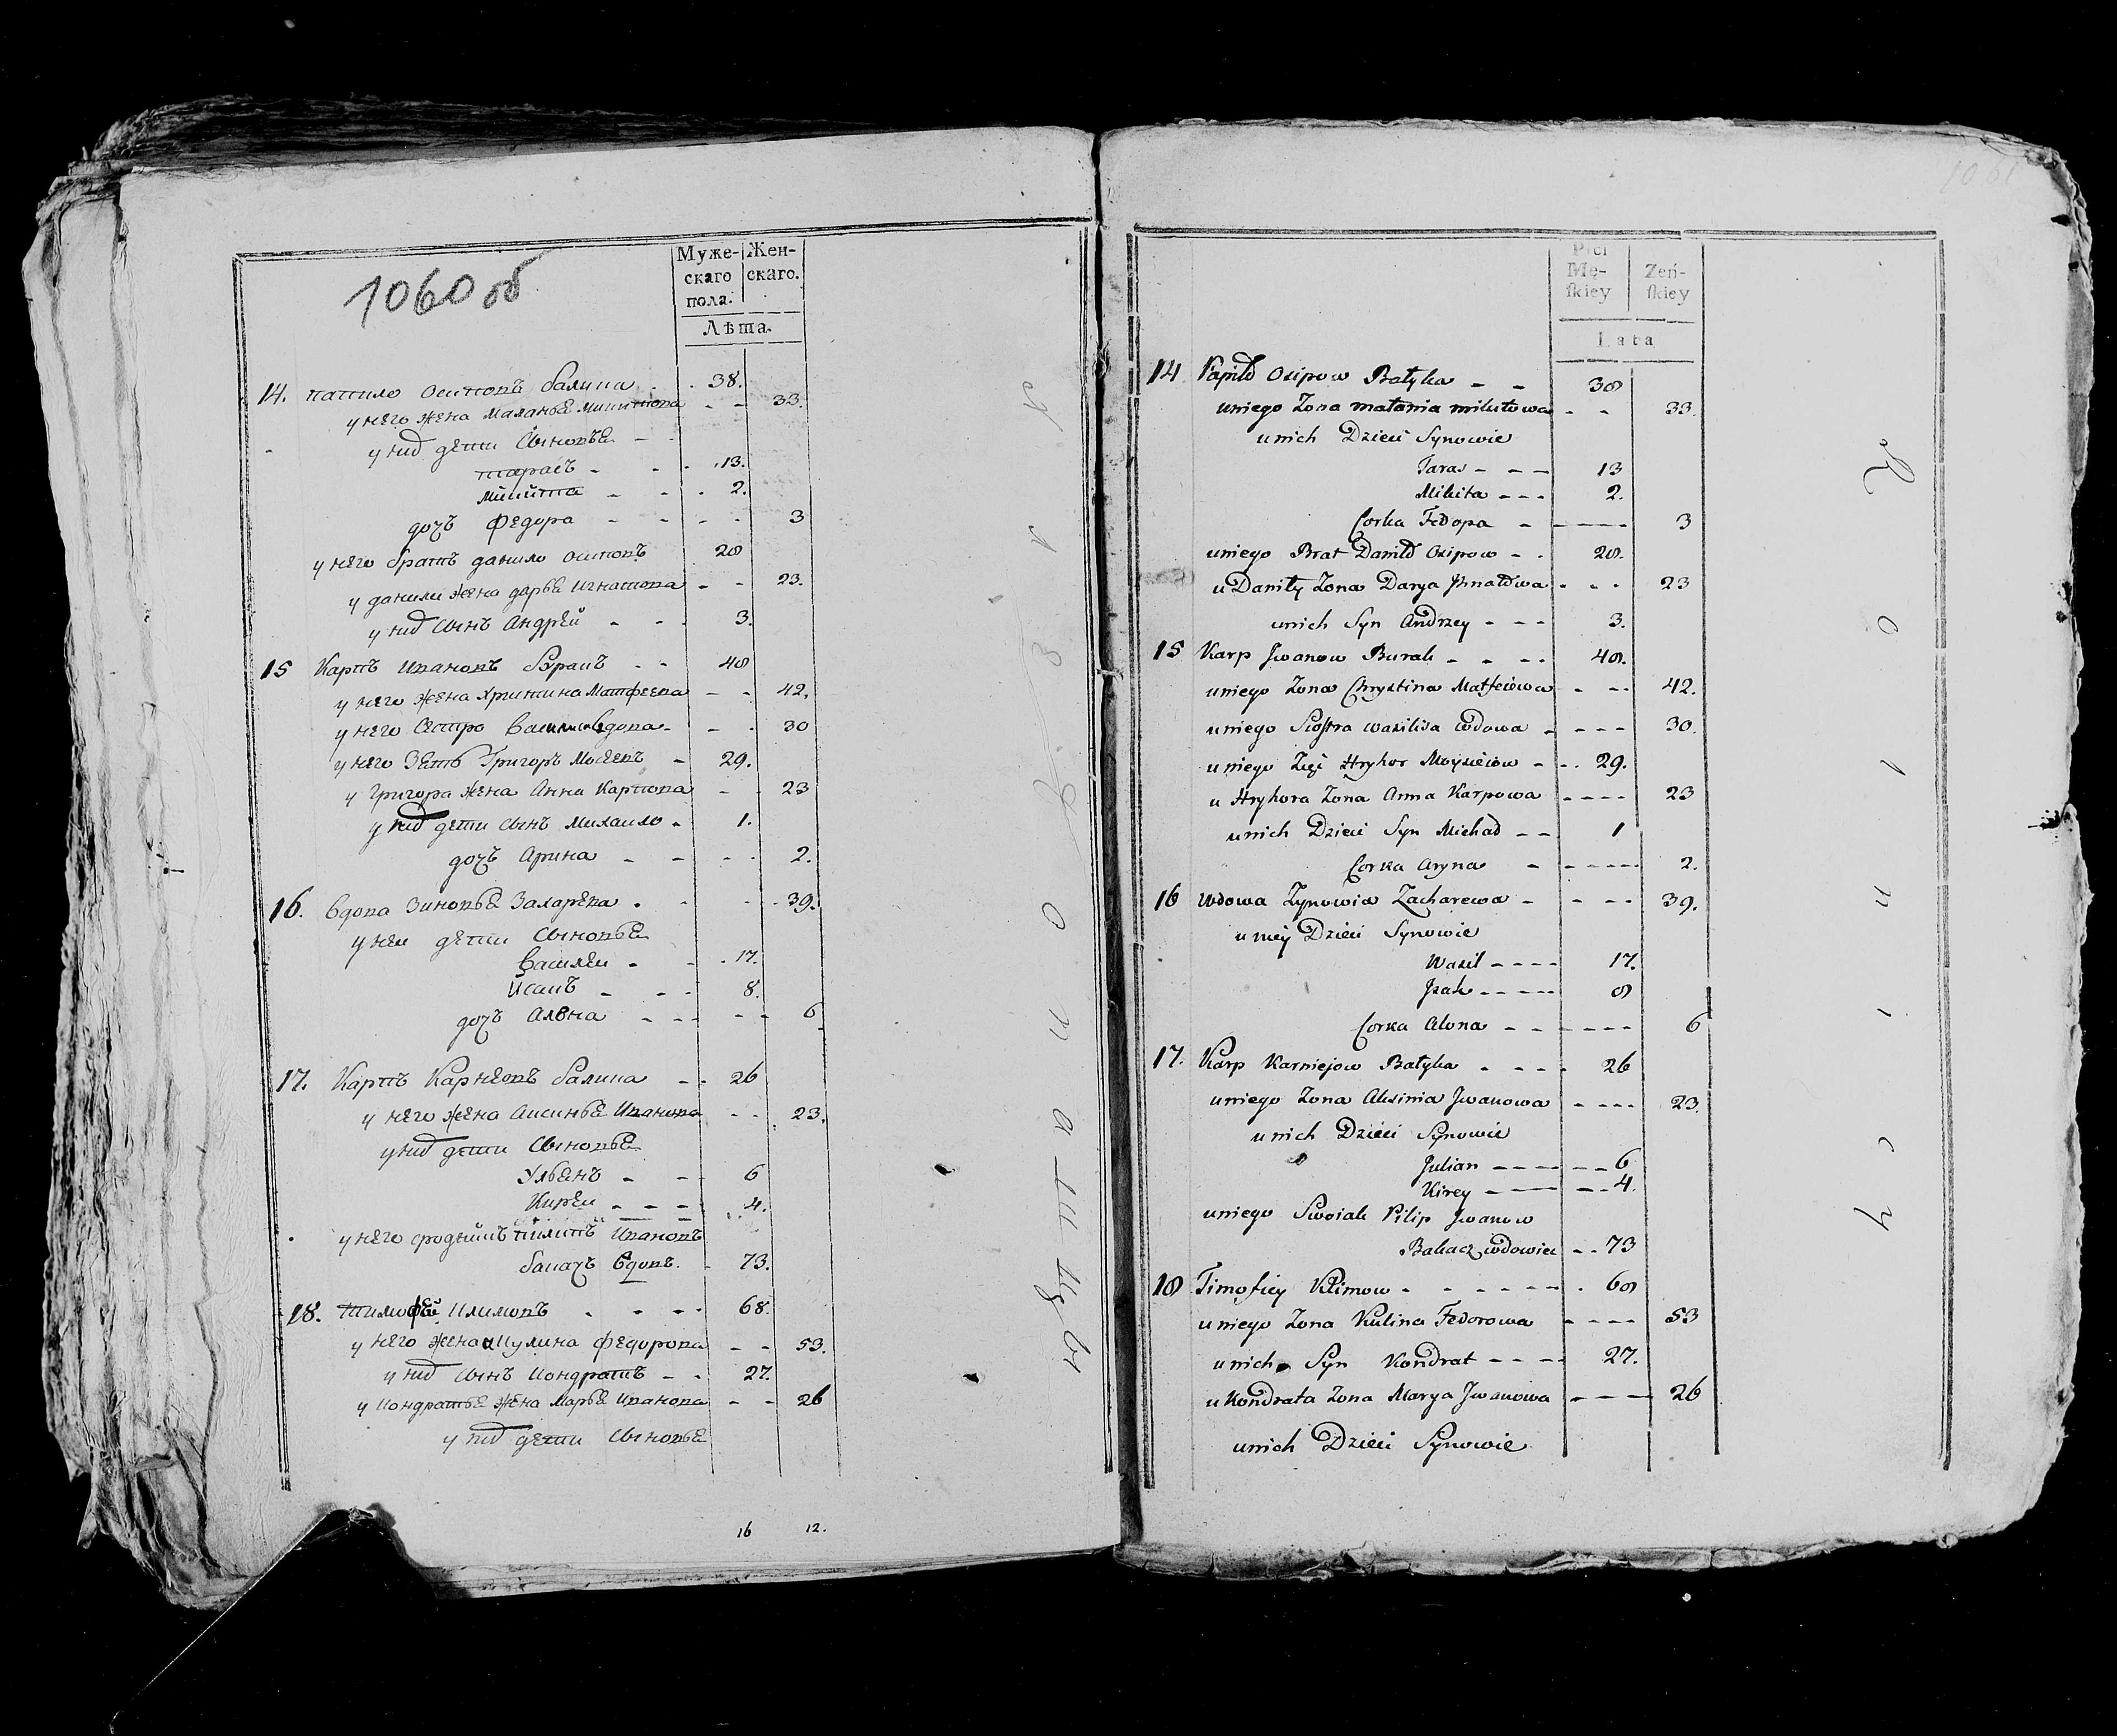 1060 об
Муже- Жен-
скаго скаго.
пола.
Лѣта.
14. Папило Осиповъ балыка 38.
у него жена Маланья Микитова 33.
у них дети Сыновья
тарасъ 13.
Микита 2.
дочь Федора 3
у него братъ данило осиповъ 28
у данили жена дарья Игнатова 23.
у них Сынъ Андрей 3.
15 Карпъ Ивановъ Буракъ 48
у него жена Христина Матфеева 42.
у него Сестра Василиса вдова 30
у него Зять Григоръ Мосеевъ 29.
у Григора жена Анна Карпова 23
у них дети сынъ Михайло 1.
дочь Арина 2.
16. Вдова Зиновья Захарева 39.
у неи дети Сыновья
Василеи 17.
Исакъ 8.
дочь Алена 6
17. Карпъ Карнеевъ балыка 26
у него жена Аксинья Иванова 23.
у них дети Сыновья
Ульянъ 6
Кирей 4.
у него сродникъ пилипъ Ивановъ
бакачъ вдовъ. 73.
18. Тимофей Климовъ 68.
у него жена Кулина Федорова 53.
у них сынъ Кондратъ 27.
у Кондратья жена Марья Иванова 26
у них дети Сыновья
16 12.
1061
Płci
Mę- Zeń-
ſkiey ſkiey
Lata
14 Papiło Osipow Bałyka 38
uniego Zona małania mikitowa 33.
unich Dzieci Synowie
Taras 13
Mikita 2.
Corka Fedora 3
uniego Brat Daniło Osipow 28.
u Daniły Zona Darya Ihnatowa 23
unich Syn Andrzey 3.
15 Karp Jwanow Burak 48.
uniego Zona Chrystina Matfeiowa 42.
uniego Siostra wasilisa wdowa 30.
uniego Zięć Hryhor Moysieiow 29.
u Hryhora Zona Anna Karpowa 23
unich Dzieci Syn Michał 1
Corka Aryna 2.
16 Wdowa Zynowia Zacharewa 39.
u niey Dzieci Synowie
Wasil 17.
Jzak 8
Corka Alona 6
17. Karp Karniejow Bałyka 26
uniego Zona Aksinia Jwanowa 23.
unich Dzieci Synowie
Julian 6
Kirey 4.
uniego Swoiak Pilip Jwanow
Bakacz wdowiec 73
18 Timofiey Klimow 68
uniego Zona Kulina Fedorowa 53
unich Syn Kondrat 27.
u Kondrata Zona Marya Jwanowa 26
unich Dzieci Synowie